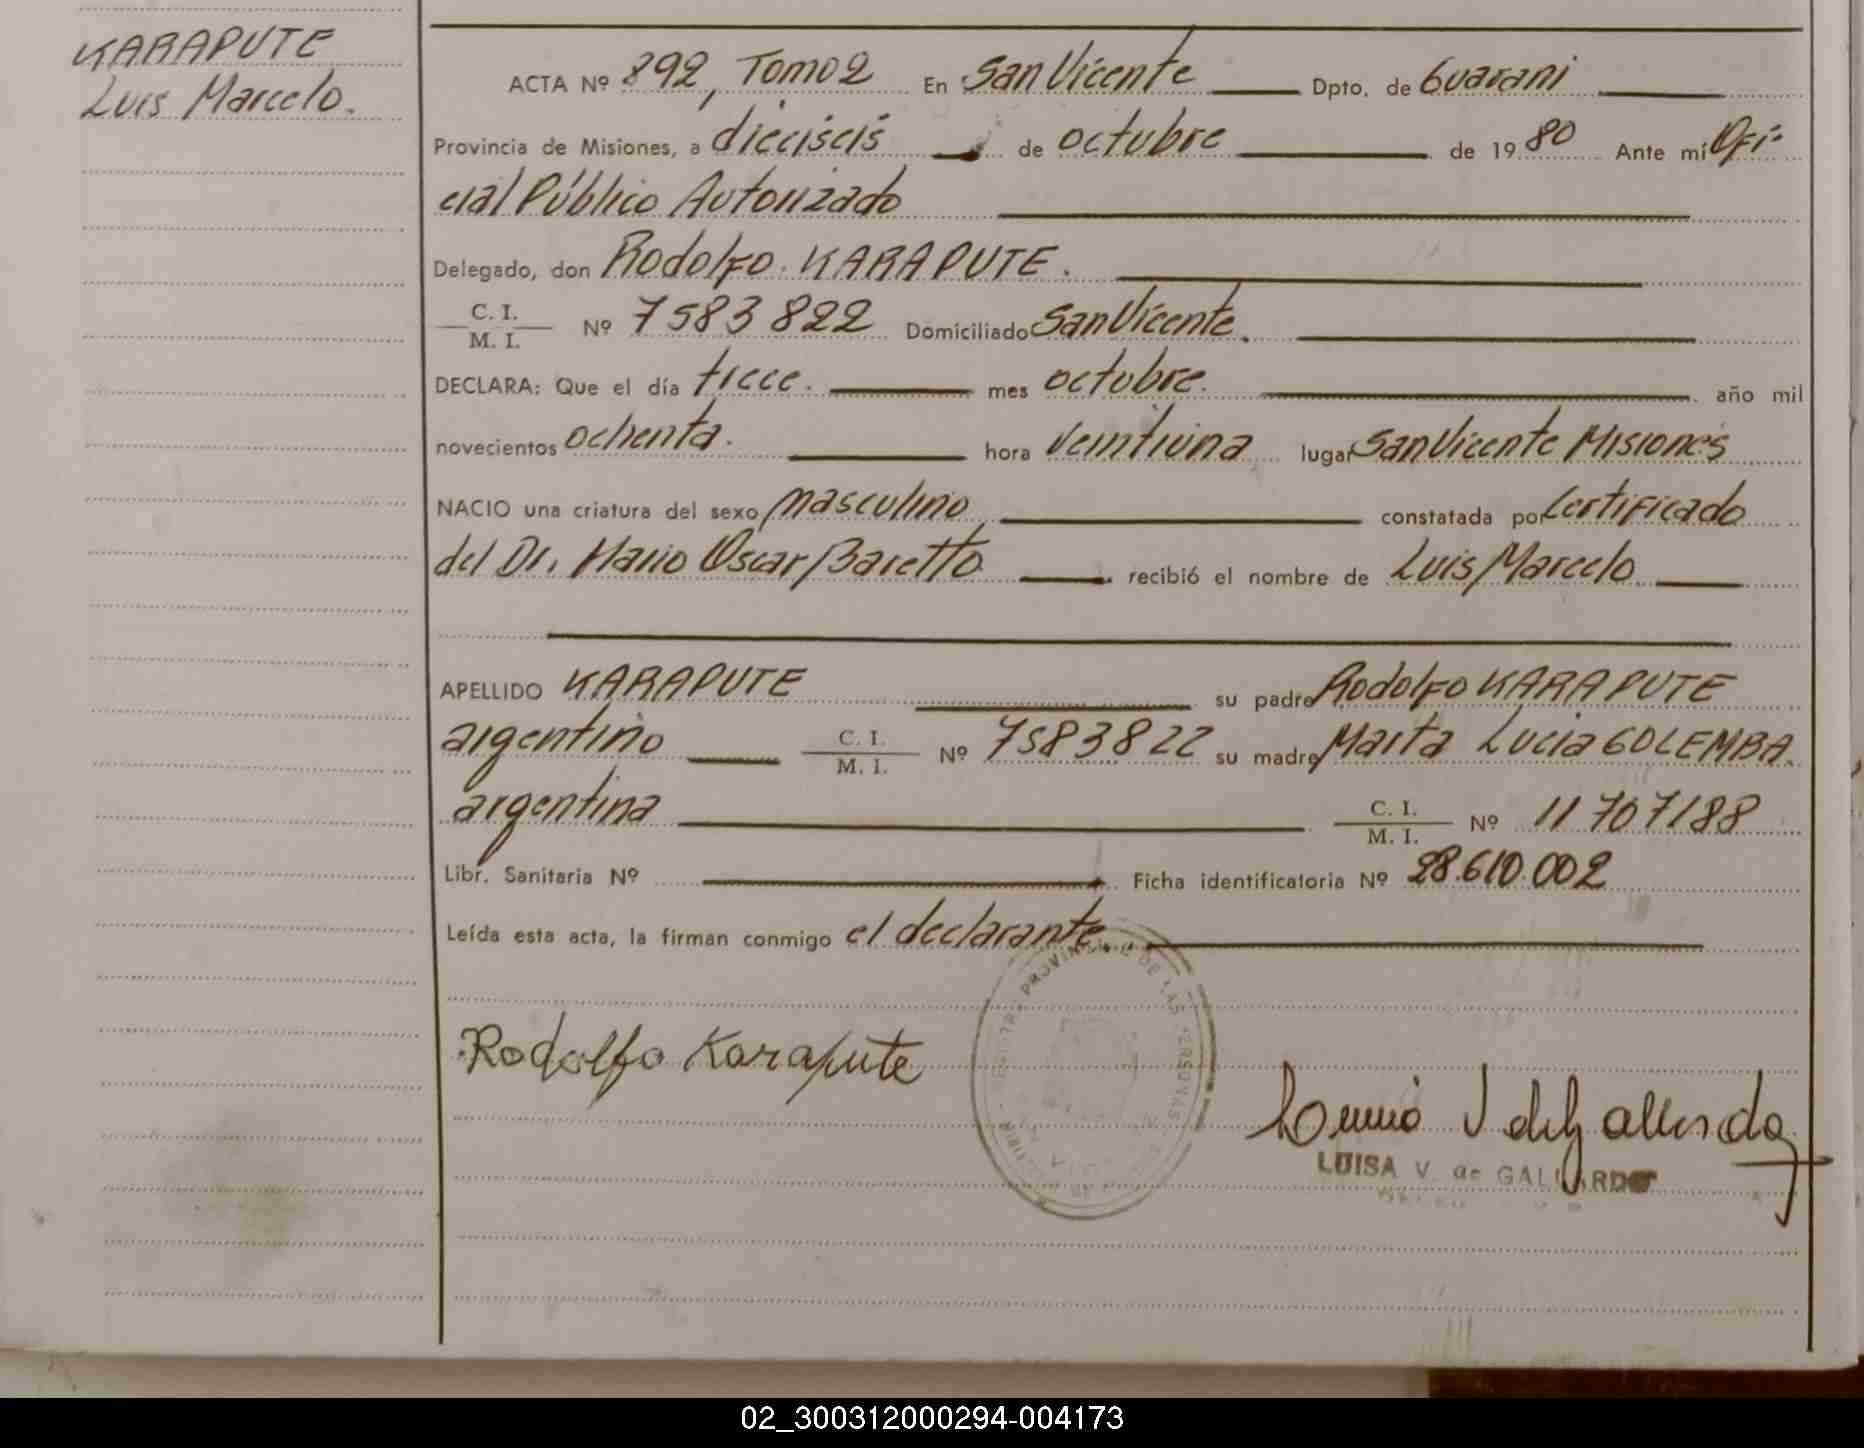 KARAPUTE
Luis Marcelo.
ACTA Nº 892, Tomo 2 En San Vicente Dpto. de Guarani
Provincia de Misiones, a dieciseis de octubre de 1980 Ante mí Ofi-
cial Público Autorizado
Delegado, don Rodolfo KARAPUTE.
C. I.
M. I. Nº 7583822 Domiciliado San Vicente.
DECLARA: Que el día trece. mes octubre. año mil
novecientos ochenta. hora veintiuna lugar San Vicente Misiones
NACIO una criatura del sexo masculino constatada por Certificado
del Dr. Mario Oscar Baretto recibió el nombre de Luis Marcelo
APELLIDO KARAPUTE su padre Rodolfo KARAPUTE
argentino C. I. M. I. Nº 7583822 su madre Marta Lucia GOLEMBA.
argentina C. I. M. I. Nº 11707188
Libr. Sanitaria Nº Ficha identificatoria Nº 28.610.002
Leída esta acta, la firman conmigo el declarante.
PROVINCIAL DE LAS PERSONAS
Rodolfo Karapute
LUISA V. de GALLARDO
02_300312000294-004173